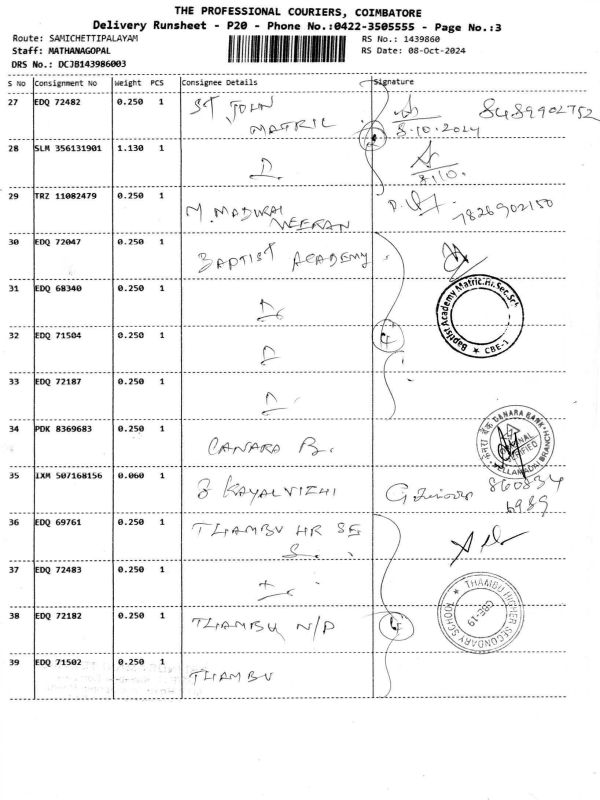 THE PROFESSIONAL COURIERS, COIMBATORE
Delivery Runsheet - P20 - Phone No.:0422-3505555 - Page No.:3
Route: SAMICHETTIPALAYAM
RS No.: 1439860
Staff: MATHANAGOPAL
RS Date: 08-Oct-2024
DRS No.: DCJB143986003
S No Consignment No Weight PCS Consignee Details Signature
27 EDQ 72482 0.250 1 ST JOHN 8489902752
MATRIC 8.10.2024
28 SLM 356131901 1.130 1 D.
8/10.
29 TRZ 11082479 0.250 1 M. MADURAI
VEERAN 7826902150
30 EDQ 72047 0.250 1 BAPTIST ACADEMY
31 EDQ 68340 0.250 1
Baptist Academy Matric.Hr.Sec.Sch
CBE-1
32 EDQ 71504 0.250 1 D
33 EDQ 72187 0.250 1
34 PDK 8369683 0.250 1 CANARA B.
केनरा बैंक CANARA BANK
VERIFIED
35 IXM 507168156 0.060 1 KAYALVIZHI 860834
6989
36 EDQ 69761 0.250 1 THAMBU HR SE
S.
37 EDQ 72483 0.250 1
THAMBU HIGHER SECONDARY SCHOOL
CBE-19
38 EDQ 72182 0.250 1 THAMBU N/P
39 EDQ 71502 0.250 1 THAMBU